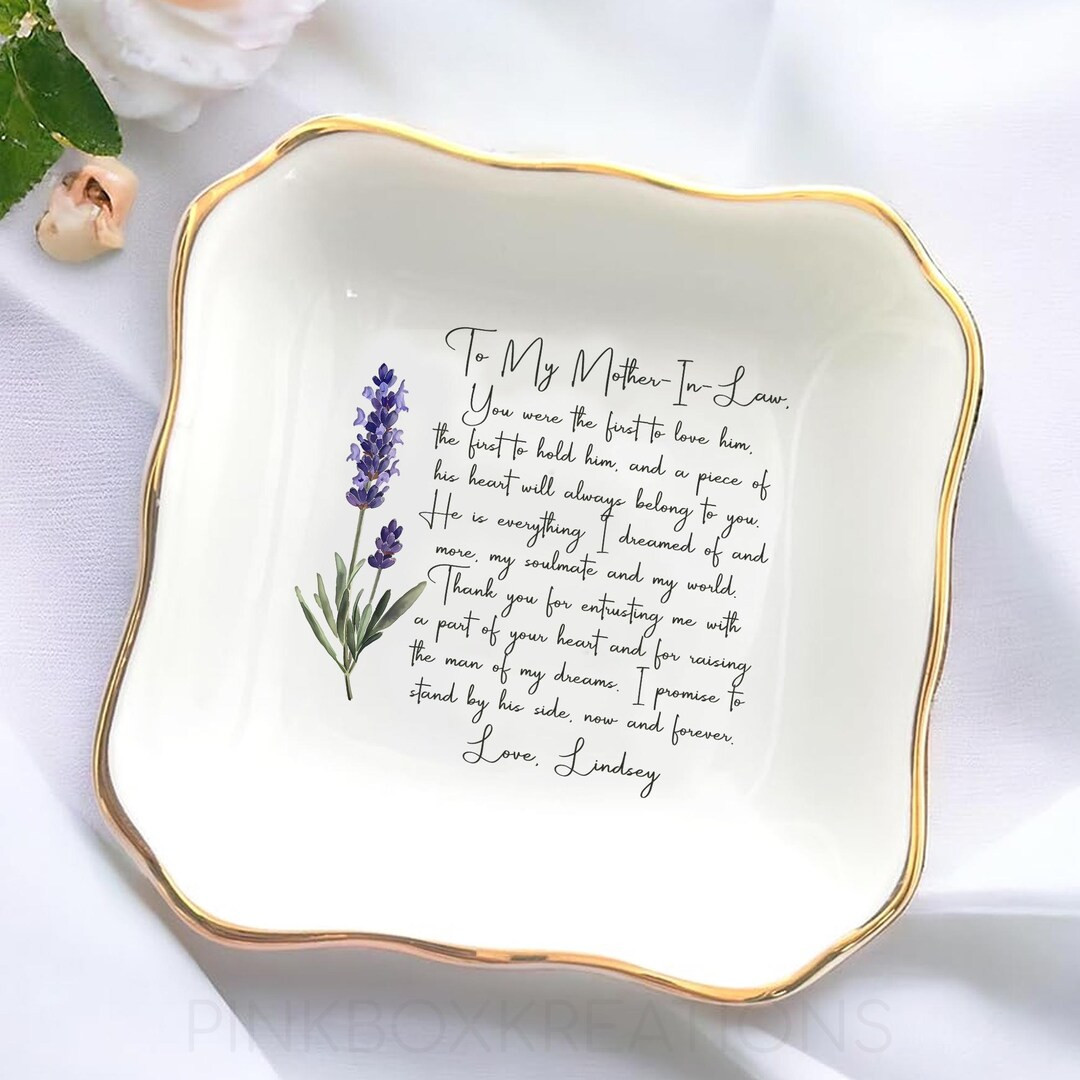 To My Mother-In-Law,
You were the first to love him,
the first to hold him, and a piece of
his heart will always belong to you.
He is everything I dreamed of and
more, my soulmate and my world.
Thank you for entrusting me with
a part of your heart and for raising
the man of my dreams. I promise to
stand by his side, now and forever.
Love, Lindsey
PINKBOXKREATIONS